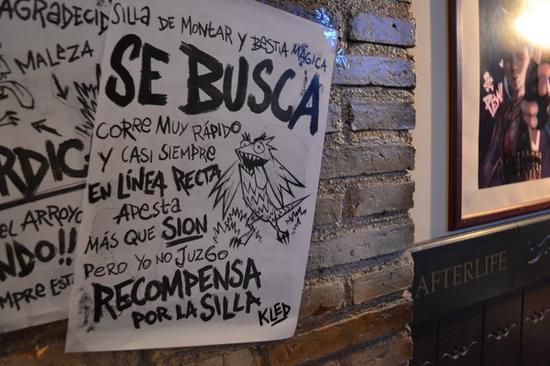 AGRADECID
MALEZA
RDIC
EL ARROYO
NDO!!
EMPRE EST
SILLA DE MONTAR Y BESTIA MÁGICA
SE BUSCA
CORRE MUY RÁPIDO
Y CASI SIEMPRE
EN LÍNEA RECTA
APESTA
MÁS QUE SION
PERO YO NO JUZGO
RECOMPENSA
POR LA SILLA
KLED
AFTERLIFE